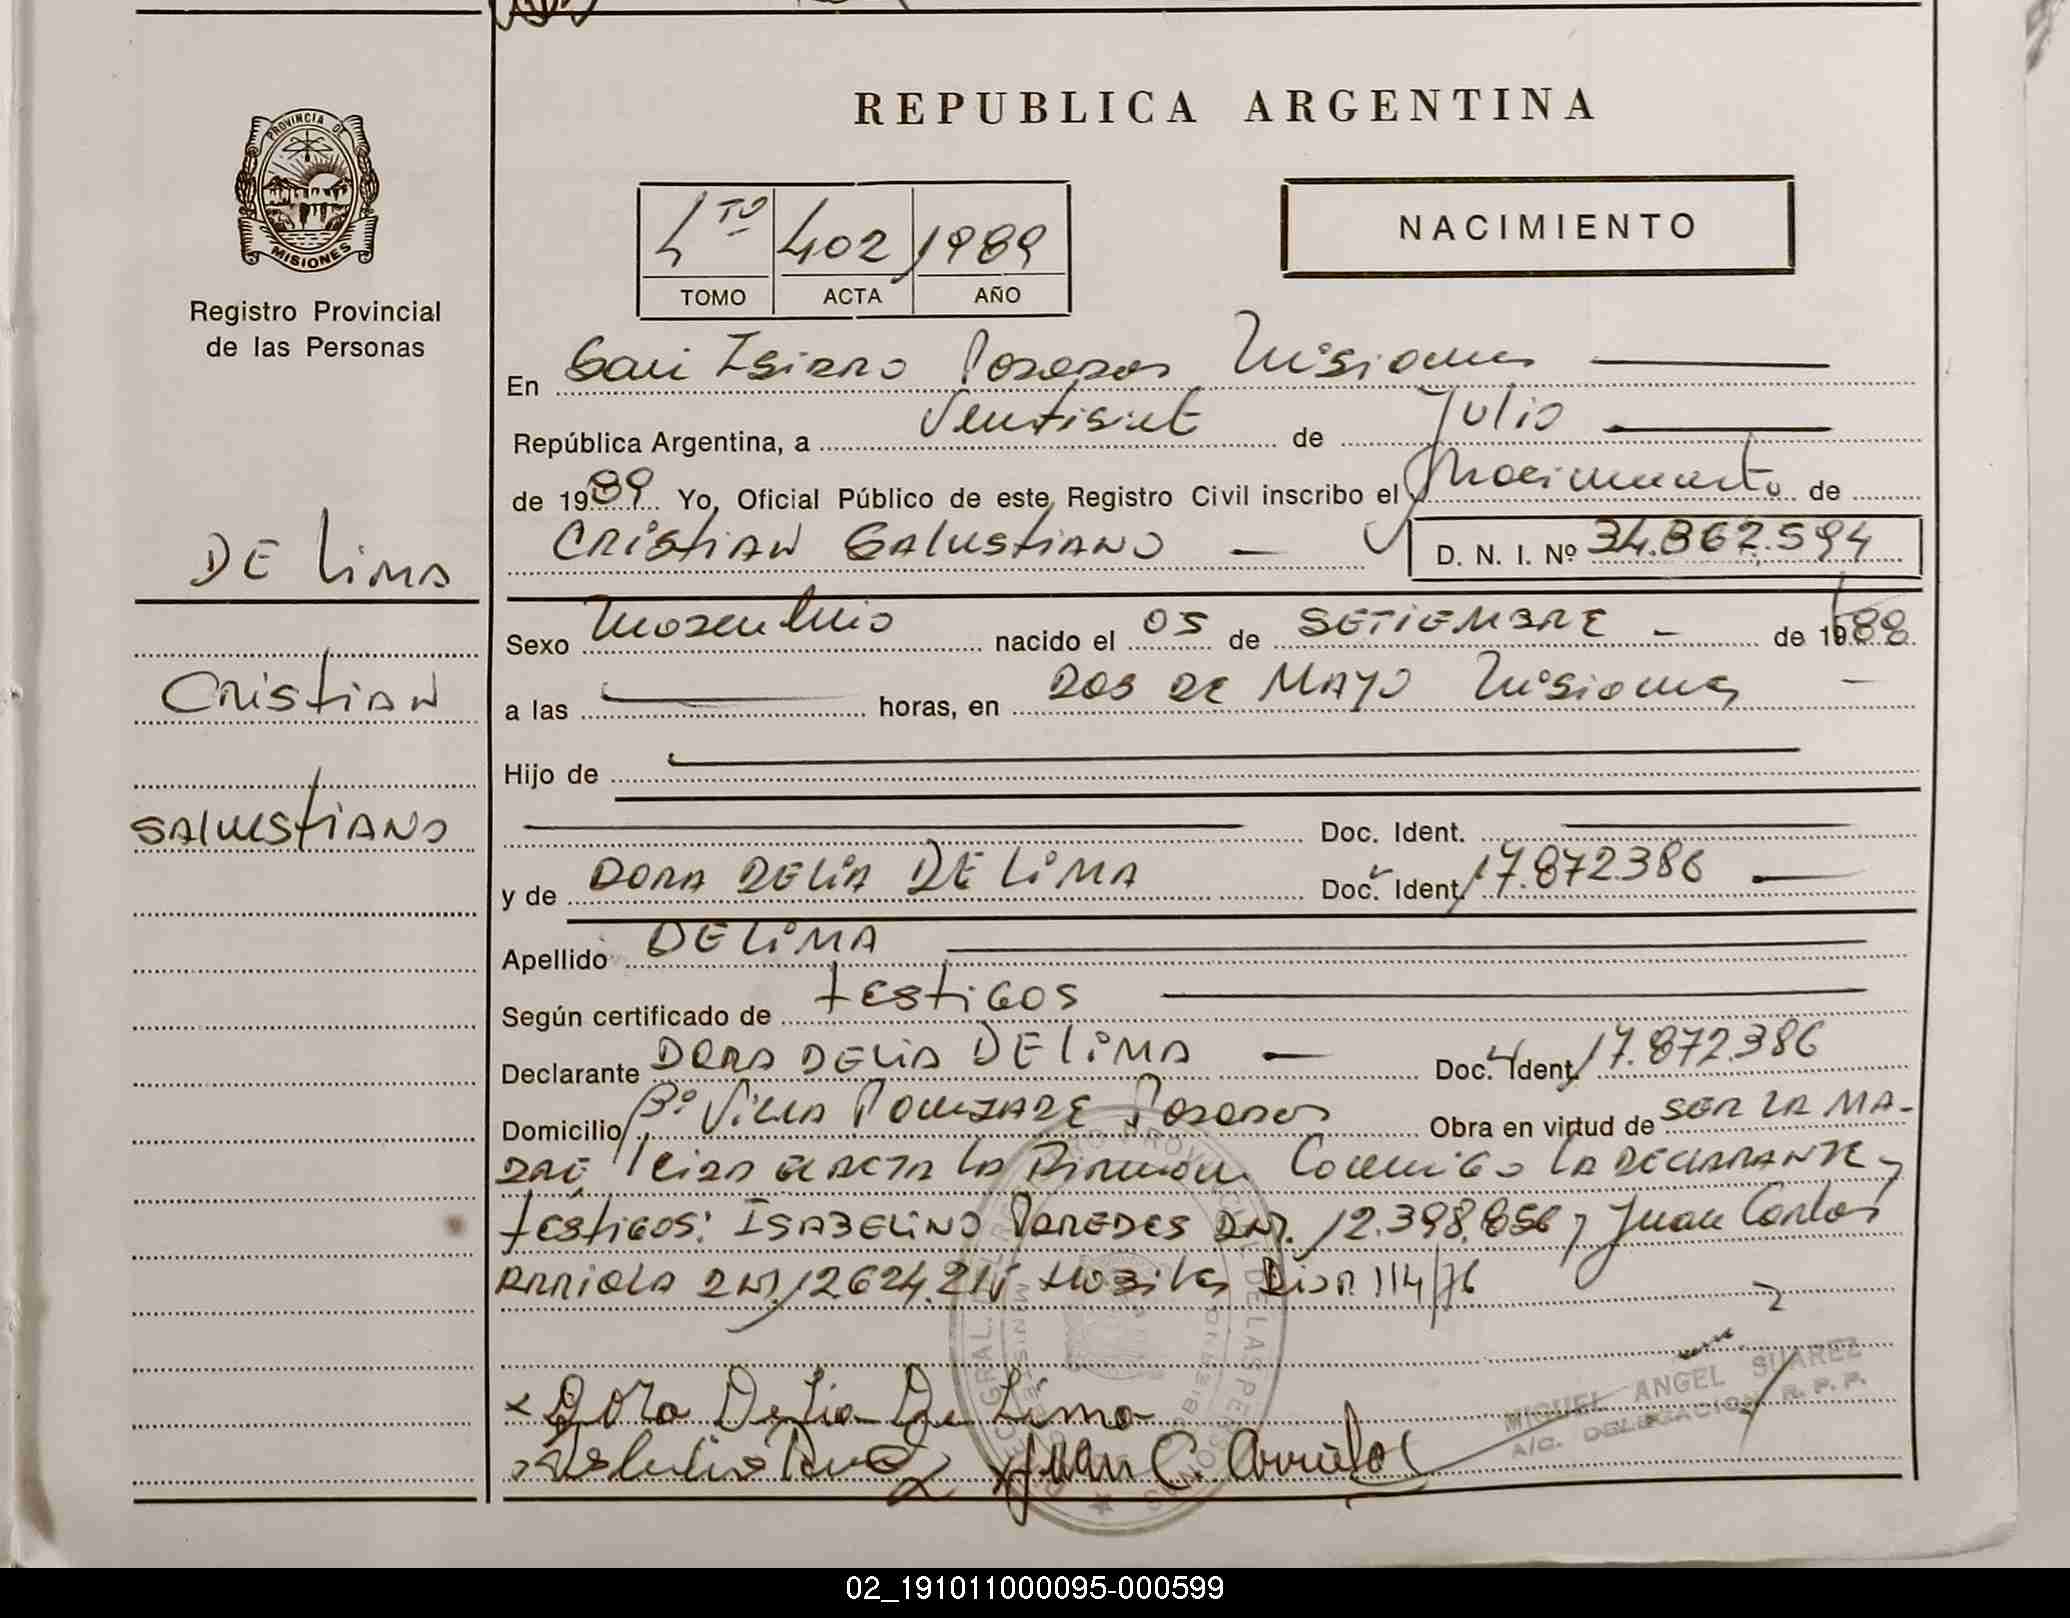 REPUBLICA ARGENTINA
PROVINCIA DE
MISIONES
Registro Provincial
de las Personas
4TO 402 1989
TOMO ACTA AÑO
NACIMIENTO
En San Isidro Posadas Misiones
República Argentina, a Ventisiete de Julio
de 1989 Yo, Oficial Público de este Registro Civil inscribo el Nacimiento de
CRISTIAN SALUSTIANO D. N. I. Nº 34.362.594
DE LIMA
CRISTIAN
SALUSTIANO
Sexo Masculino nacido el 05 de SETIEMBRE de 1988
a las horas, en DOS DE MAYO Misiones
Hijo de
Doc. Ident.
y de DORA DELIA DE LIMA Doc. Ident. 17.872.386
Apellido DE LIMA
Según certificado de testigos
Declarante DORA DELIA DE LIMA Doc. Ident. 17.872.386
Domicilio Bº Villa Posadas Obra en virtud de SER LA MA-
DRE leida el ACTA la Firman Conmigo LA DECLARANTE y
testigos: ISABELINO PAREDES DNI. 12.398.856 y Juan Carlos
ARRIOLA DNI. 12.624.211 Disp. 114/76
x Dora Delia De Lima
Juan C. Arriola
MIGUEL ANGEL SUAREZ
A/C. DELEGACION R. P. P.
02_191011000095-000599